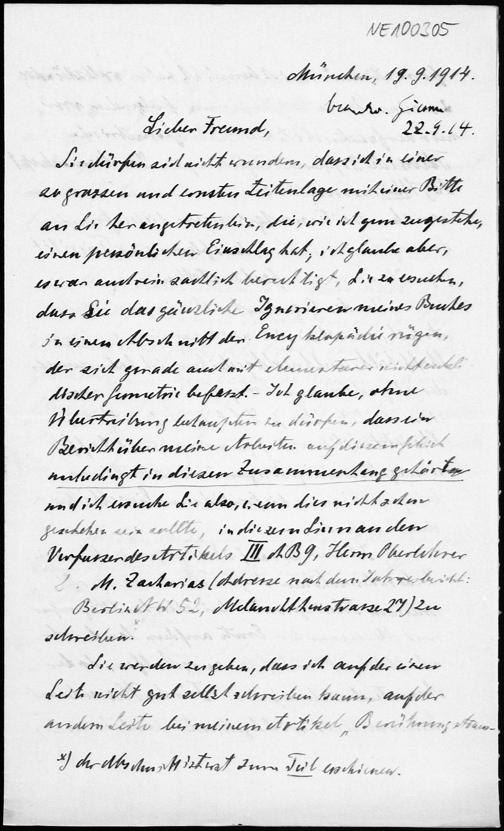 NE100305
München, 19.9.1914.
22.9.14.
Lieber Freund,
Sie dürfen sich nicht wundern, dass ich in einer
so grossen und ernsten Zeitenlage mit einer Bitte
an Sie herangetreten bin, die, wie ich gern zugestehe,
einen persönlichen Einschlag hat; ich glaube aber,
es war auch rein sachlich berechtigt, Sie zu ersuchen,
dass Sie das gänzliche Ignorieren meines Buches
in einem Abschnitt der Encyklopädie rügen,
der sich gerade auch mit elementarer nichteukli-
discher Geometrie befasst. - Ich glaube, ohne
Übertreibung behaupten zu dürfen, dass ein
Bericht über meine Arbeiten auf diesem Gebiet
unbedingt in diesen Zusammenhang gehört
und ich ersuche Sie also, wenn dies nicht schon
geschehen sein sollte, in diesem Sinn an den
Verfasser des Artikels III AB 9, Herrn Oberlehrer
M. Zacharias (Adresse nach dem Jahresbericht:
Berlin NW 52, Melanchthonstrasse 27) zu
schreiben.
Sie werden zugeben, dass ich auf der einen
Seite nicht gut selbst schreiben kann, auf der
andern Seite bei meinem Artikel „Berührungstrans-
x) der Abschnitt ist erst zum Teil erschienen.